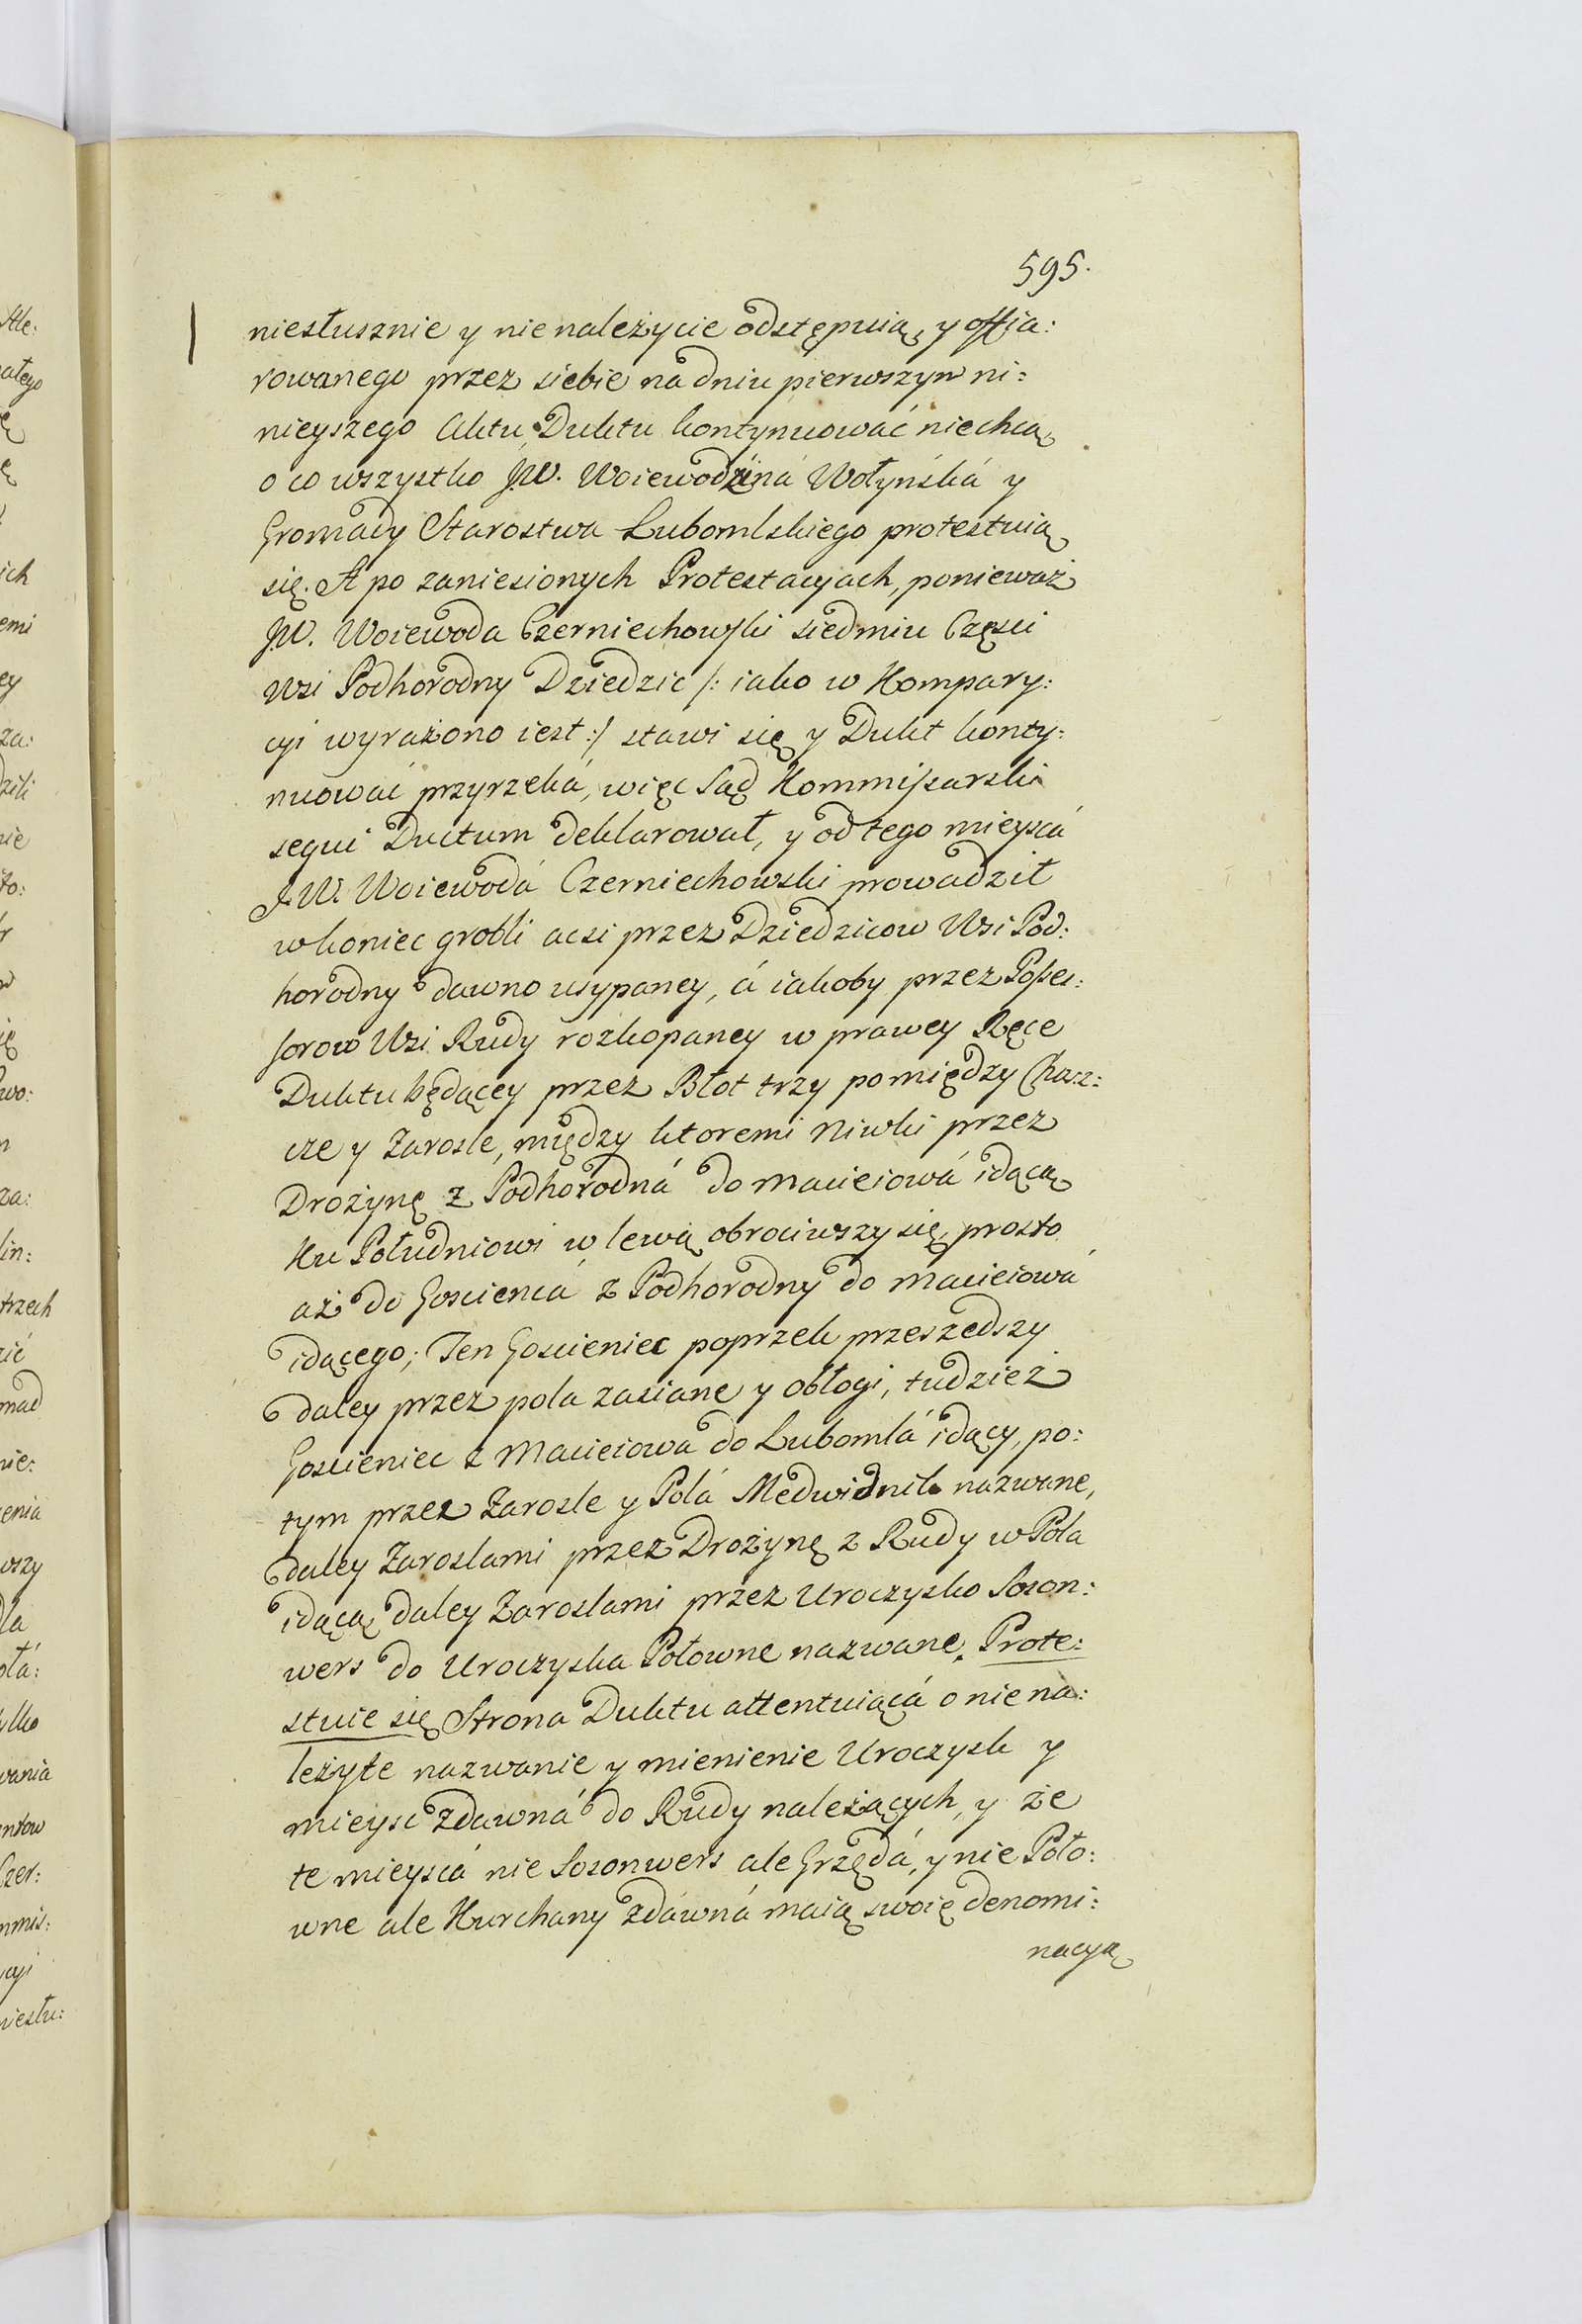 595.
niesłusznie y nie należycie odstępuią, y offia:
rowanego przez siebie na dniu pierwszym ni:
nieyszego Aktu, Duktu kontynuowáć niechcą
o co wszystko J.W. Woiewodziná Wołyńská y
Gromady Starostwa Lubomlskiego protestuią
się. A po zaniesionych Protestacyach, ponieważ
J.W. Woiewoda Czerniechowski siedmiu Części
Wsi Podhorodny Dziedzic /: iako w Kompary:
cyi wyrażono iest :/ stawi się y Dukt konty:
nuowáć przyrzeká, więc Sąd Kommissarski
sequi Ductum deklarował, y od tego mieyscá
J.W. Woiewodá Czerniechowski prowadził
w koniec grobli acsi przez Dziedzicow Wsi Pod:
horodny dawno usypaney, á iakoby przez Posses:
sorow Wsi Rudy rozkopaney w prawey Ręce
Duktu będącey przez Błot trzy pomiędzy Chasz:
cze y Zarosle, między ktoremi Niwki przez
Drożynę z Podhorodná do Macieiowá idącą
Ku Południowi w lewą obrociwszy się, prosto
aż do Goscieńcá z Podhorodny do Macieiowá
idącego; Ten Goscieniec poprzek przeszedszy
daley przez pola zasiane y obłogi, tudzież
Goscieniec z Macieiowa do Lubomlá idący, po:
tym przez Zarosle y Polá Medwidnik nazwane,
daley Zaroslami przez Drożynę z Rudy w Pola
idącą daley Zaroslami przez Uroczysko Soson:
wers do Uroczyska Połowne nazwane. Prote:
stuie się Strona Duktu attentuiącá o niena:
leżyte nazwanie y mienienie Uroczysk y
mieysc zdawná do Rudy należących, y że
te mieyscá nie Sosonwers ale Grzędá, y nie Poło:
wne ale Kurchany zdáwná maią swoię denomi:
nacyą